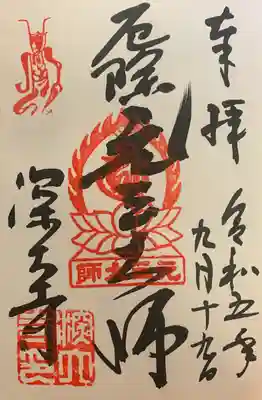 奉拝
令和五年
九月十九日
厄除元三大師
元三大師
深大寺